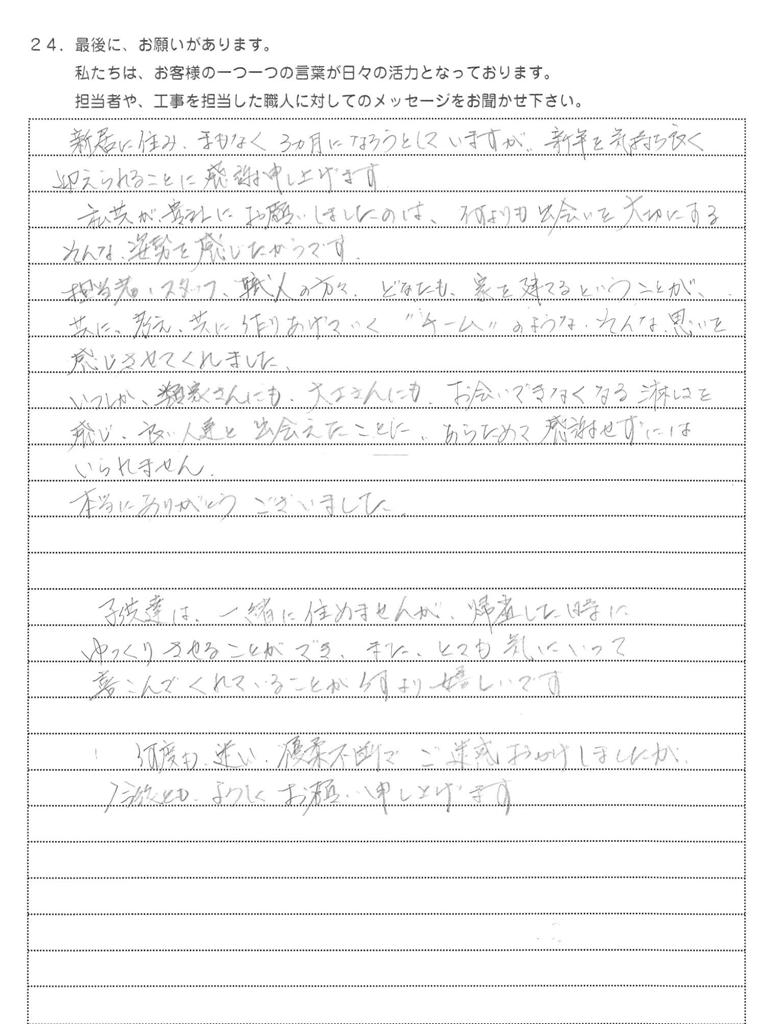 24．最後に、お願いがあります。
私たちは、お客様の一つ一つの言葉が日々の活力となっております。
担当者や、工事を担当した職人に対してのメッセージをお聞かせ下さい。
新居に住み、まもなく 3ヵ月になろうとしていますが、新年を気持ち良く
迎えられることに感謝申し上げます
私共が、貴社にお願いしましたのは、何よりも出会いを大切にする
そんな、姿勢を感じたからです。
担当者、スタッフ、職人の方々、どなたも、家を建てるということが、
共に、考え、共に作りあげていく "チーム" のような、そんな思いを
感じさせてくれました、
いつしか、さんにも、大工さんにも、お会いできなくなる淋しさを
感じ、良い人達と出会えたことに、あらためて感謝せずには
いられません。
本当にありがとうございました。
子供達は、一緒に住めませんが、帰省した時に
ゆっくりさせることができ、また、とても気にいって
喜こんでくれていることが何より嬉しいです
何度も、迷い、優柔不断でご迷惑おかけしましたが、
今後とも、よろしくお願い申し上げます